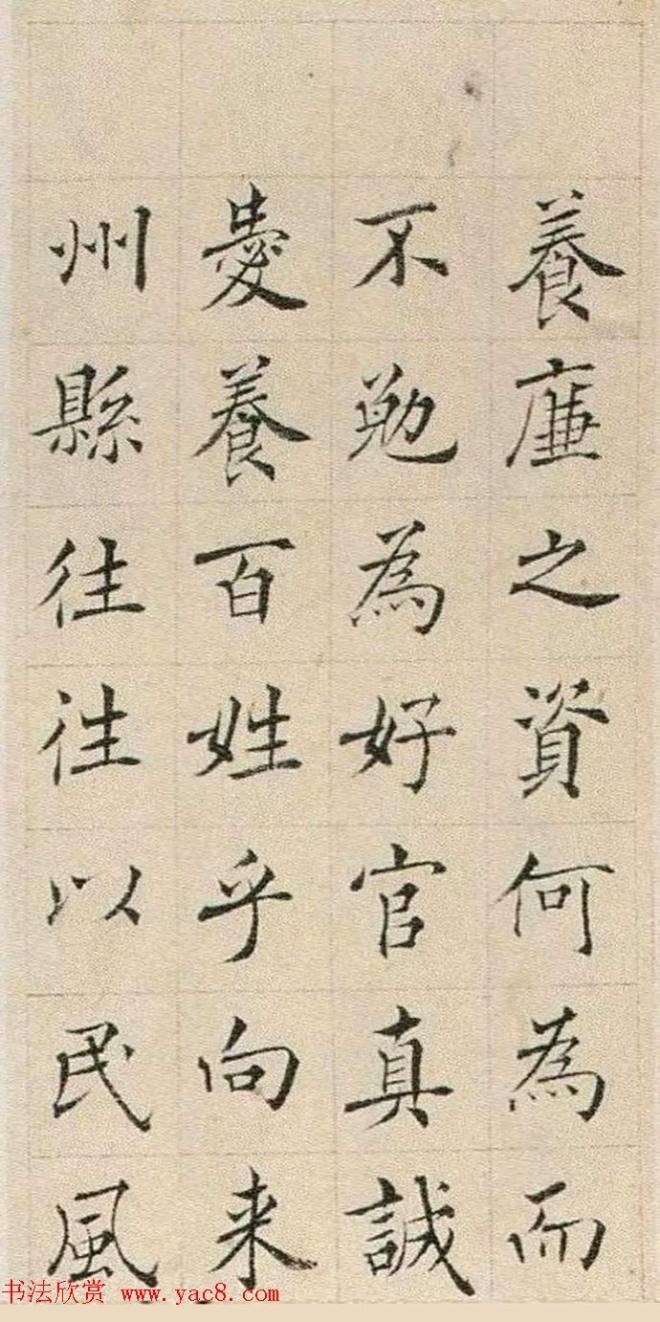 養廉之資何為而
不勉為好官真誠
愛養百姓乎向来
州縣往往以民風
书法欣赏 www.yac8.com